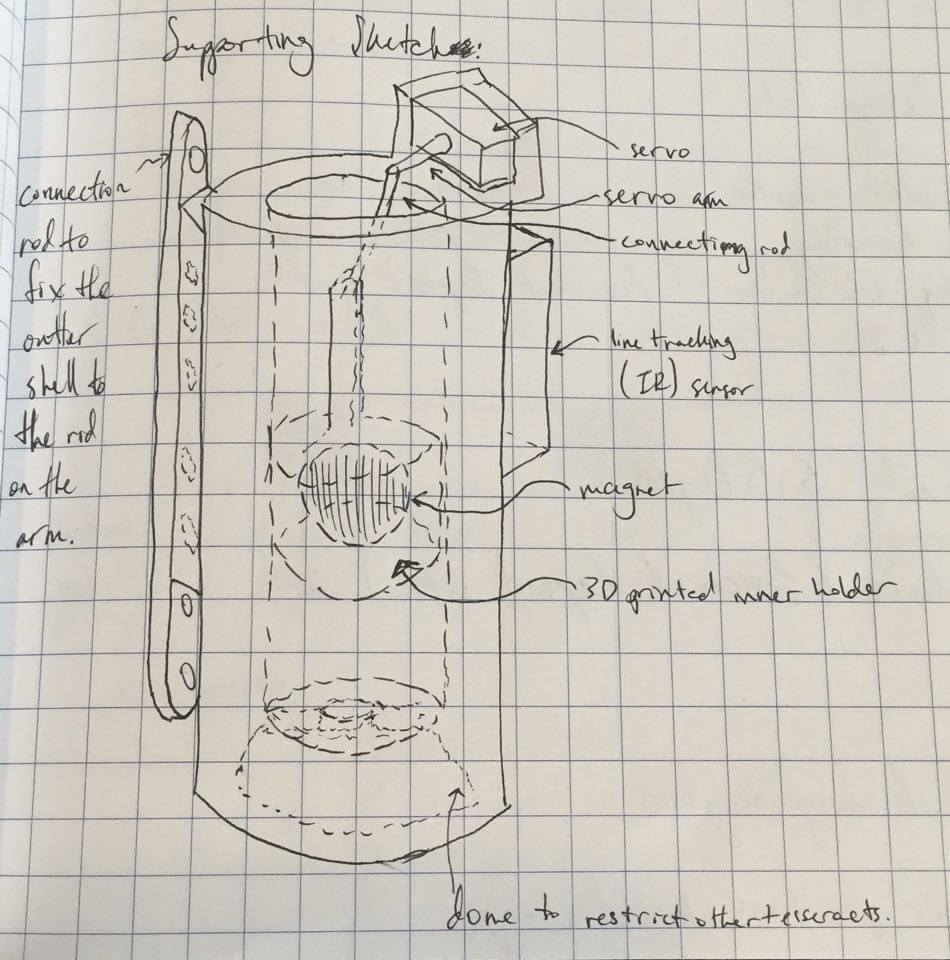 Supporting Sketch:
connection
rod to
fix the
outter
shell to
the rod
on the
arm.
servo
servo arm
connectiong rod
line tracking
(IR) sensor
magnet
3D printed inner holder
dome to restrict other tesseracts.